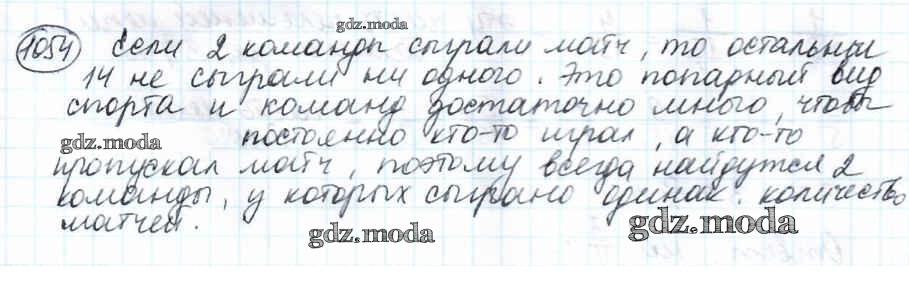 1054 Если 2 команды сыграли матч, то остальные
14 не сыграли ни одного. Это попарный вид
спорта и команд достаточно много, чтобы
gdz.moda постоянно кто-то играл, а кто-то
пропускал матч, поэтому всегда найдутся 2
команды, у которых сыграно одинак. количество
матчей.
gdz.moda
gdz.moda
gdz.moda
gdz.moda